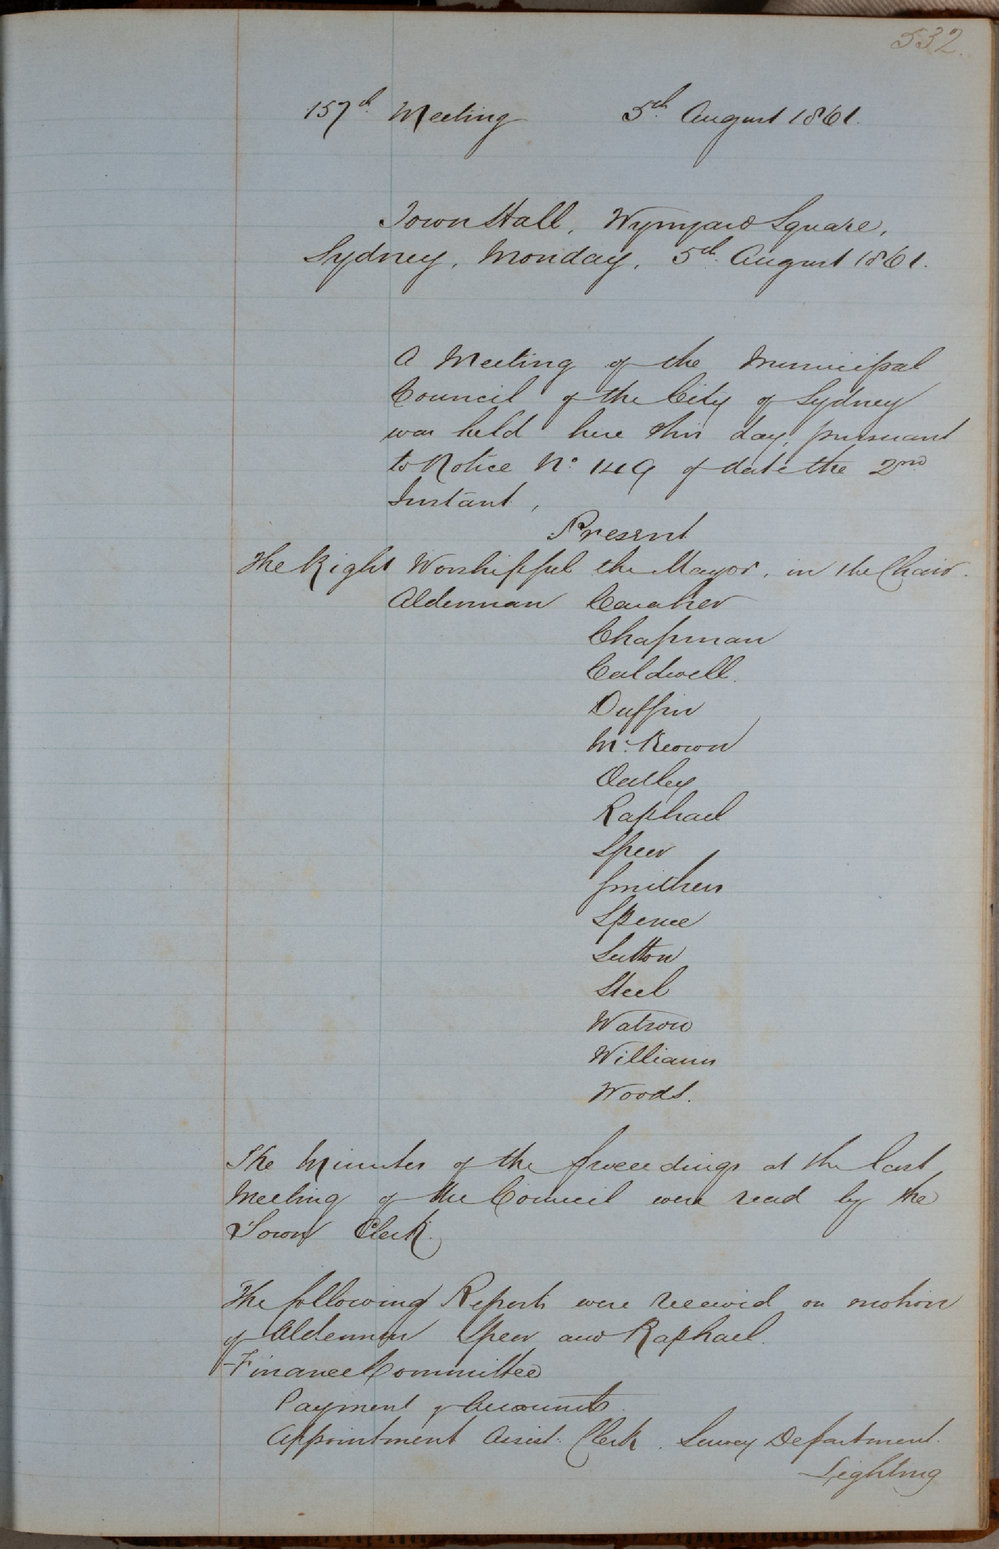 532.
157th Meeting 5th August 1861.
Town Hall, Wynyard Square,
Sydney, Monday, 5th August 1861.
A Meeting of the Municipal
Council of the City of Sydney
was held here this day, pursuant
to Notice No. 149 of date the 2nd
Instant,
Present
The Right Worshipful the Mayor, in the Chair.
Alderman Caraher
Chapman
Caldwell.
Duffin
McKeown
Oatley
Raphael
Speer
Smithers
Spence
Sutton
Steel
Watson
Williams
Woods.
The Minutes of the proceedings at the last
Meeting of the Council were read by the
Town Clerk.
The following Reports were received on motion
of Aldermen Speer and Raphael.
Finance Committee
Payment of Accounts.
Appointment Assist. Clerk. Survey Department.
Lighting